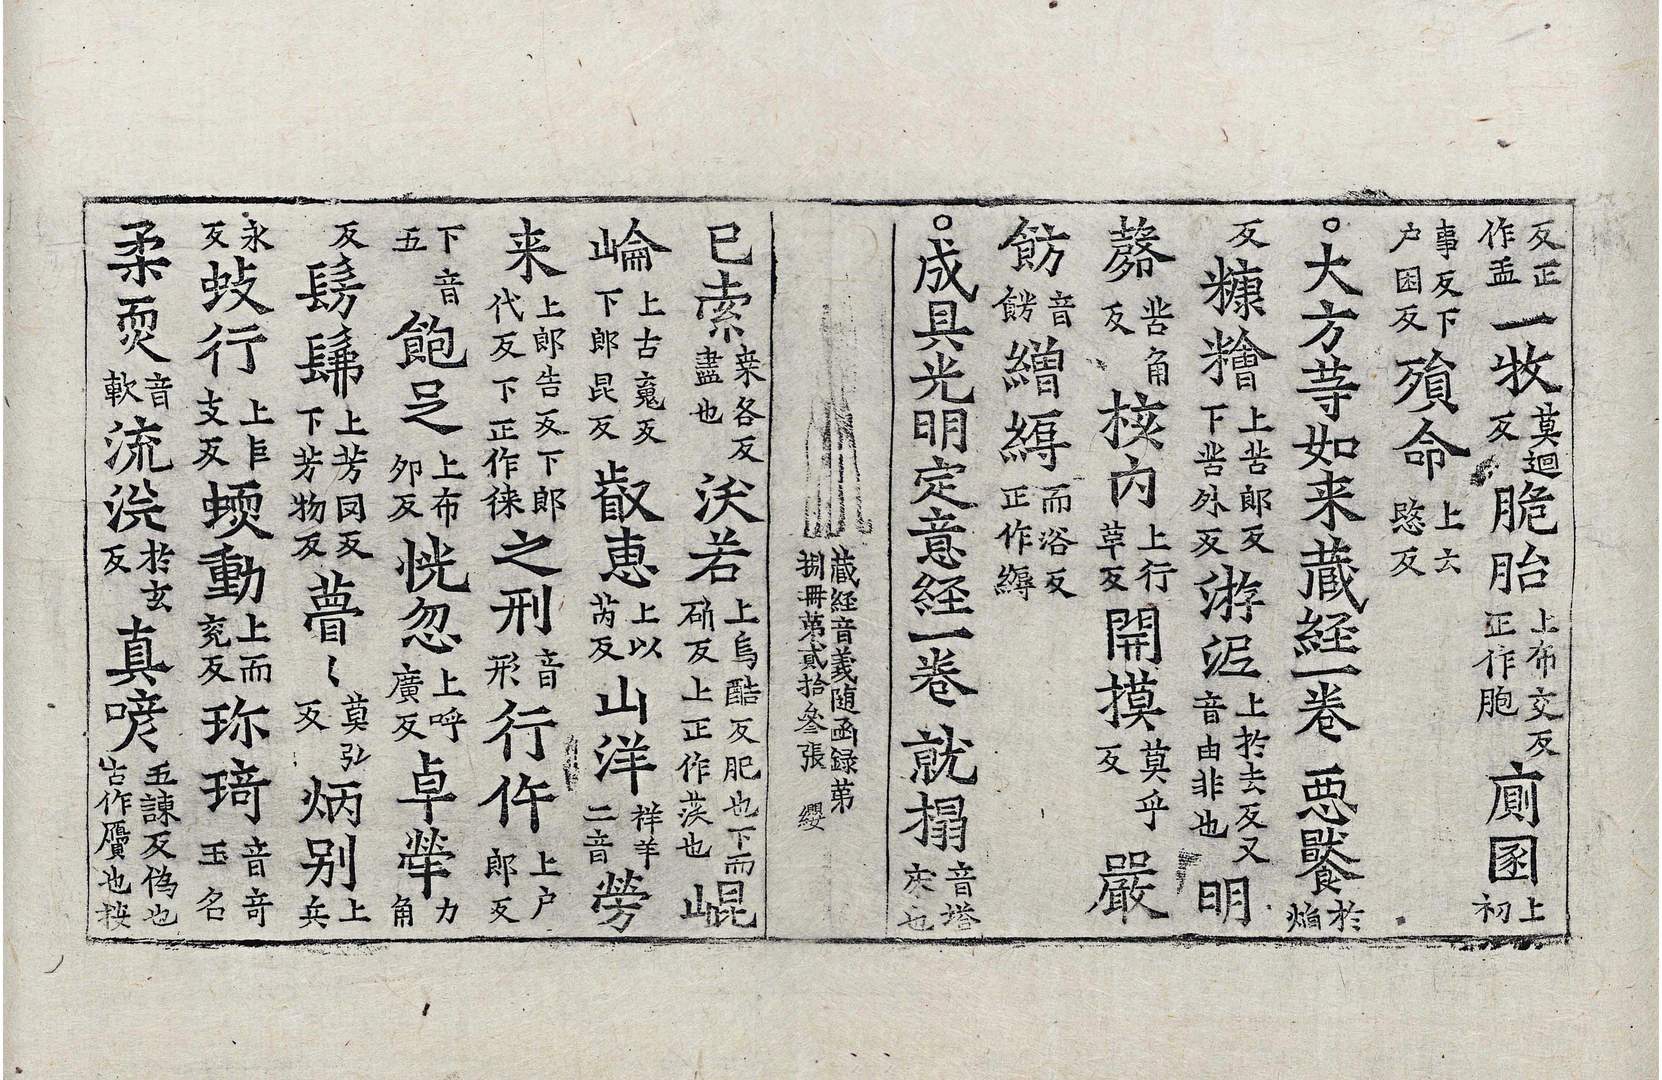 反正作盂一牧莫迴反脆胎上布交反正作胞廁圂上初
事反下户困反殞命上六愍反
○大方等如来藏経一卷惡饜於焔
反糠糩上苦郎反下苦外反淤泥上於去反又音由非也明
㲉苦角反核內上行革反開摸莫乎反嚴
飭音餝繒縟而浴反正作縟
○成具光明定意経一卷就搨音塔床也
藏経音義随函録第捌冊第貳拾叁張 纓
已索桒各反盡也沃若上烏酷反肥也下而斫反上正作渶也崐
崘上古䰟反下郎昆反叡惠上以芮反山洋祥羊二音勞
来上郎告反下郎代反下正作徠之刑音形行仵上户郎反
下音五飽足上布夘反恍忽上呼廣反卓犖力角
反髣髴上芳罔反下芳物反薨〻莫弘反炳别上兵
永反蚑行上巨支反蝡動上而兖反珎琦音竒玉名
柔耎音軟流涀於玄反真喭五諫反偽也古作贋也按